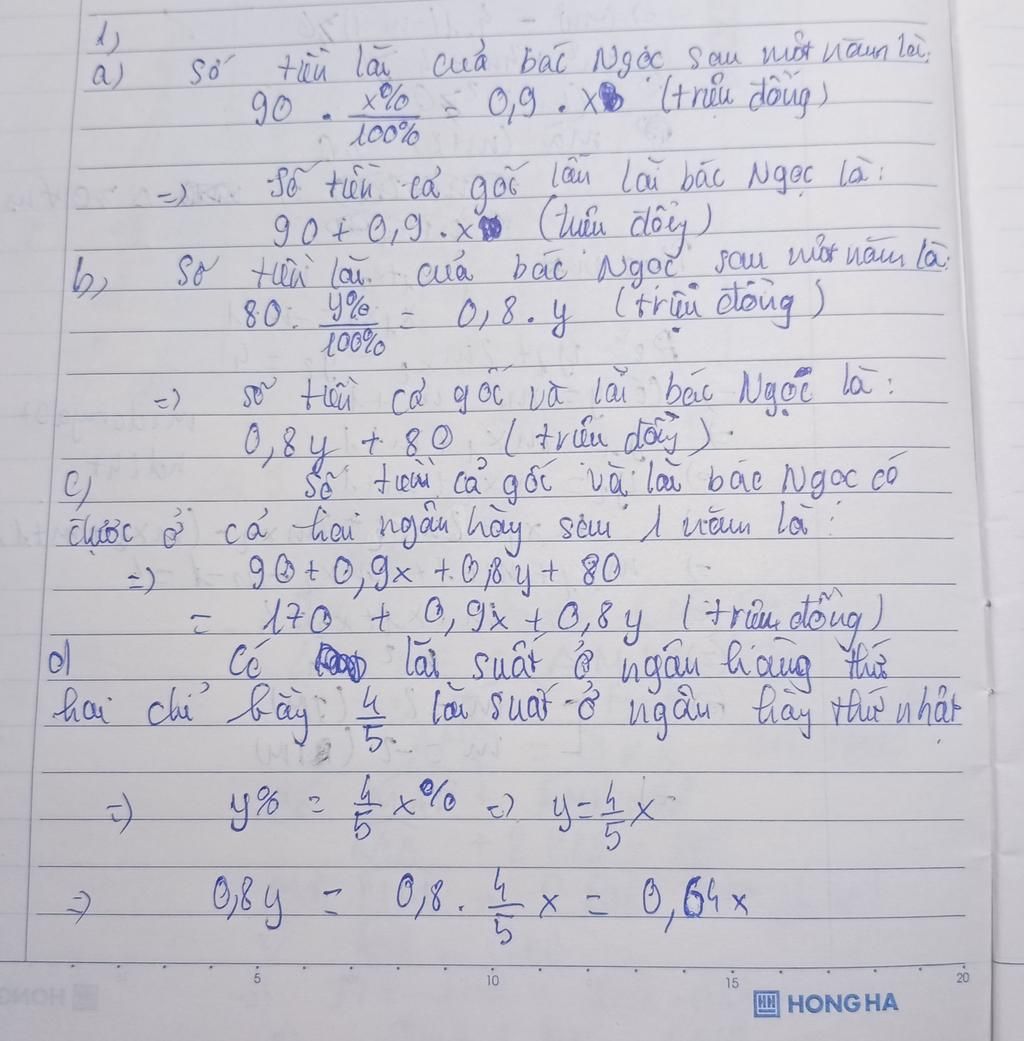 1,
a) Số tiền lãi của bác Ngọc sau một năm là:
90 . x%/100% = 0,9 . x (triệu đồng)
=> Số tiền cả gốc lẫn lãi bác Ngọc là:
90 + 0,9 . x (triệu đồng)
b, Số tiền lãi của bác Ngọc sau một năm là
80 . y%/100% = 0,8 . y (triệu đồng)
=> Số tiền cả gốc và lãi bác Ngọc là:
0,8y + 80 (triệu đồng)
c, Số tiền cả gốc và lãi bác Ngọc có
được ở cả hai ngân hày sau 1 năm là:
=> 90 + 0,9x + 0,8y + 80
= 170 + 0,9x + 0,8y (triệu đồng)
d) Có lãi suất ở ngân hàng thứ
hai chỉ bằy 4/5 lãi suất ở ngân hày thứ nhất
=> y% = 4/5 x% => y = 4/5 x
=> 0,8y = 0,8 . 4/5 x = 0,64x
5 10 15 20
HONG HA